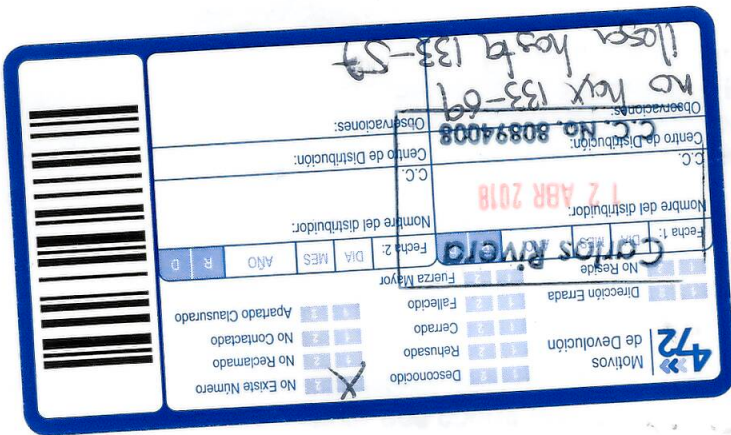 472
Motivos
de Devolución
1 2 Desconocido
1 2 Rehusado
1 2 Cerrado
1 2 Fallecido
1 2 Fuerza Mayor
1 2 No Existe Número
1 2 No Reclamado
1 2 No Contactado
1 2 Apartado Clausurado
1 2 Dirección Errada
1 2 No Reside
Fecha 1: DIA MES AÑO R D
Carlos Rivera
Nombre del distribuidor:
12 ABR 2018
C.C.
C.C. No. 80894008
Centro de Distribución:
Observaciones:
no hay 133-69
llega hasta 133-57
Fecha 2: DIA MES AÑO R D
Nombre del distribuidor:
C.C.
Centro de Distribución:
Observaciones: